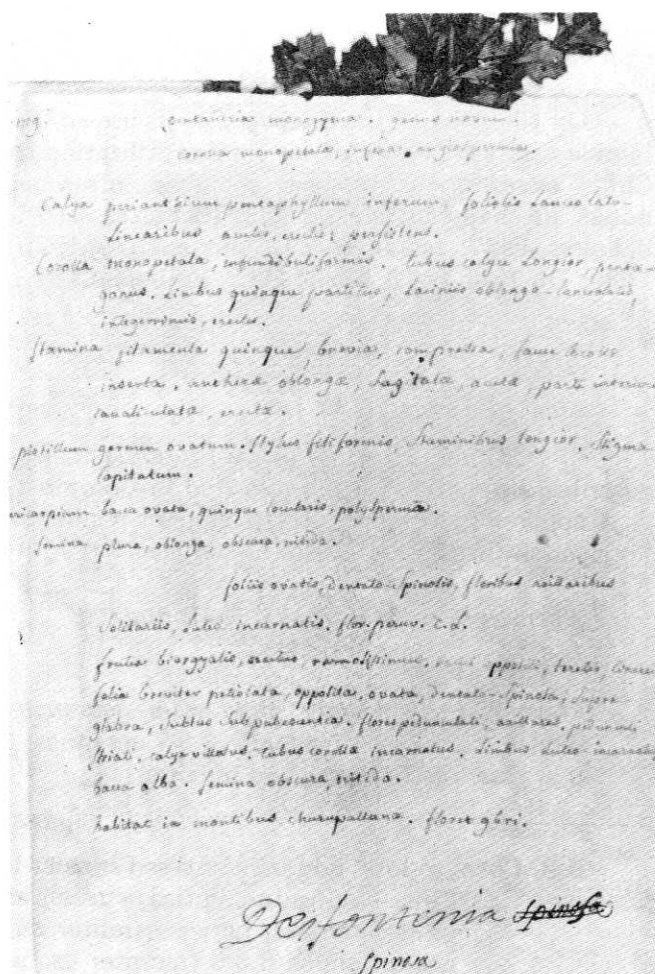 monogynia. genus novum.
corona monopetala, infera, angiosperma.
Calyx perianthium pentaphyllum inferum, foliolis Lanceolato-
Linearibus, acutis, erectis, persistens.
Corolla monopetala, infundibuliformis. tubus calyce Longior, penta-
gonus. Limbus quinque partitus, Laciniis oblongo-lanceolatis,
integerrimis, erectis.
Stamina filamenta quinque, brevia, compressa, fauce
inserta. antheræ oblongæ, Sagitatæ, acutæ, parte interiore
canaliculatæ, erectæ.
pistillum germen ovatum. Stylus filiformis, Staminibus longior. Stigma
Capitatum.
ericarpium bacca ovata, quinque locularis, polysperma.
Semina plura, oblonga, obscura, nitida.
foliis ovatis, dentato-Spinosis, floribus axillaribus
Solitariis, Luteo incarnatis. flor. peruv.
frutex biorgyalis, erectus, ramosissimus, rami oppositi, teretes,
folia breviter petiolata, opposita, ovata, dentato-Spinosa, Supra
glabra, Subtus Subpubescentia. flores pedunculati, axillares. pedunculi
Striati. calyx villosus. tubus corollæ incarnatus. Limbus Luteo incarnatus
bacca alba. Semina obscura, nitida.
habitat in montibus churupallana. floret
Desfontenia spinosa
spinosa